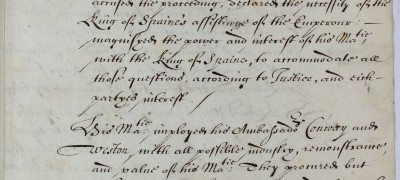 accused the proceeding, declared the necessity of the
King of Spaines assistance of the Emperour: —
magnifyed the power and interest of his Ma:tie
with the King of Spaine, to accommodate all
those questions, according to Justice, and eith-
partyes interest
His Ma:tie imployed his Ambassadors Conway and
Weston, with all possible industry, remonstrance,
and value of his Ma:tie They procured but